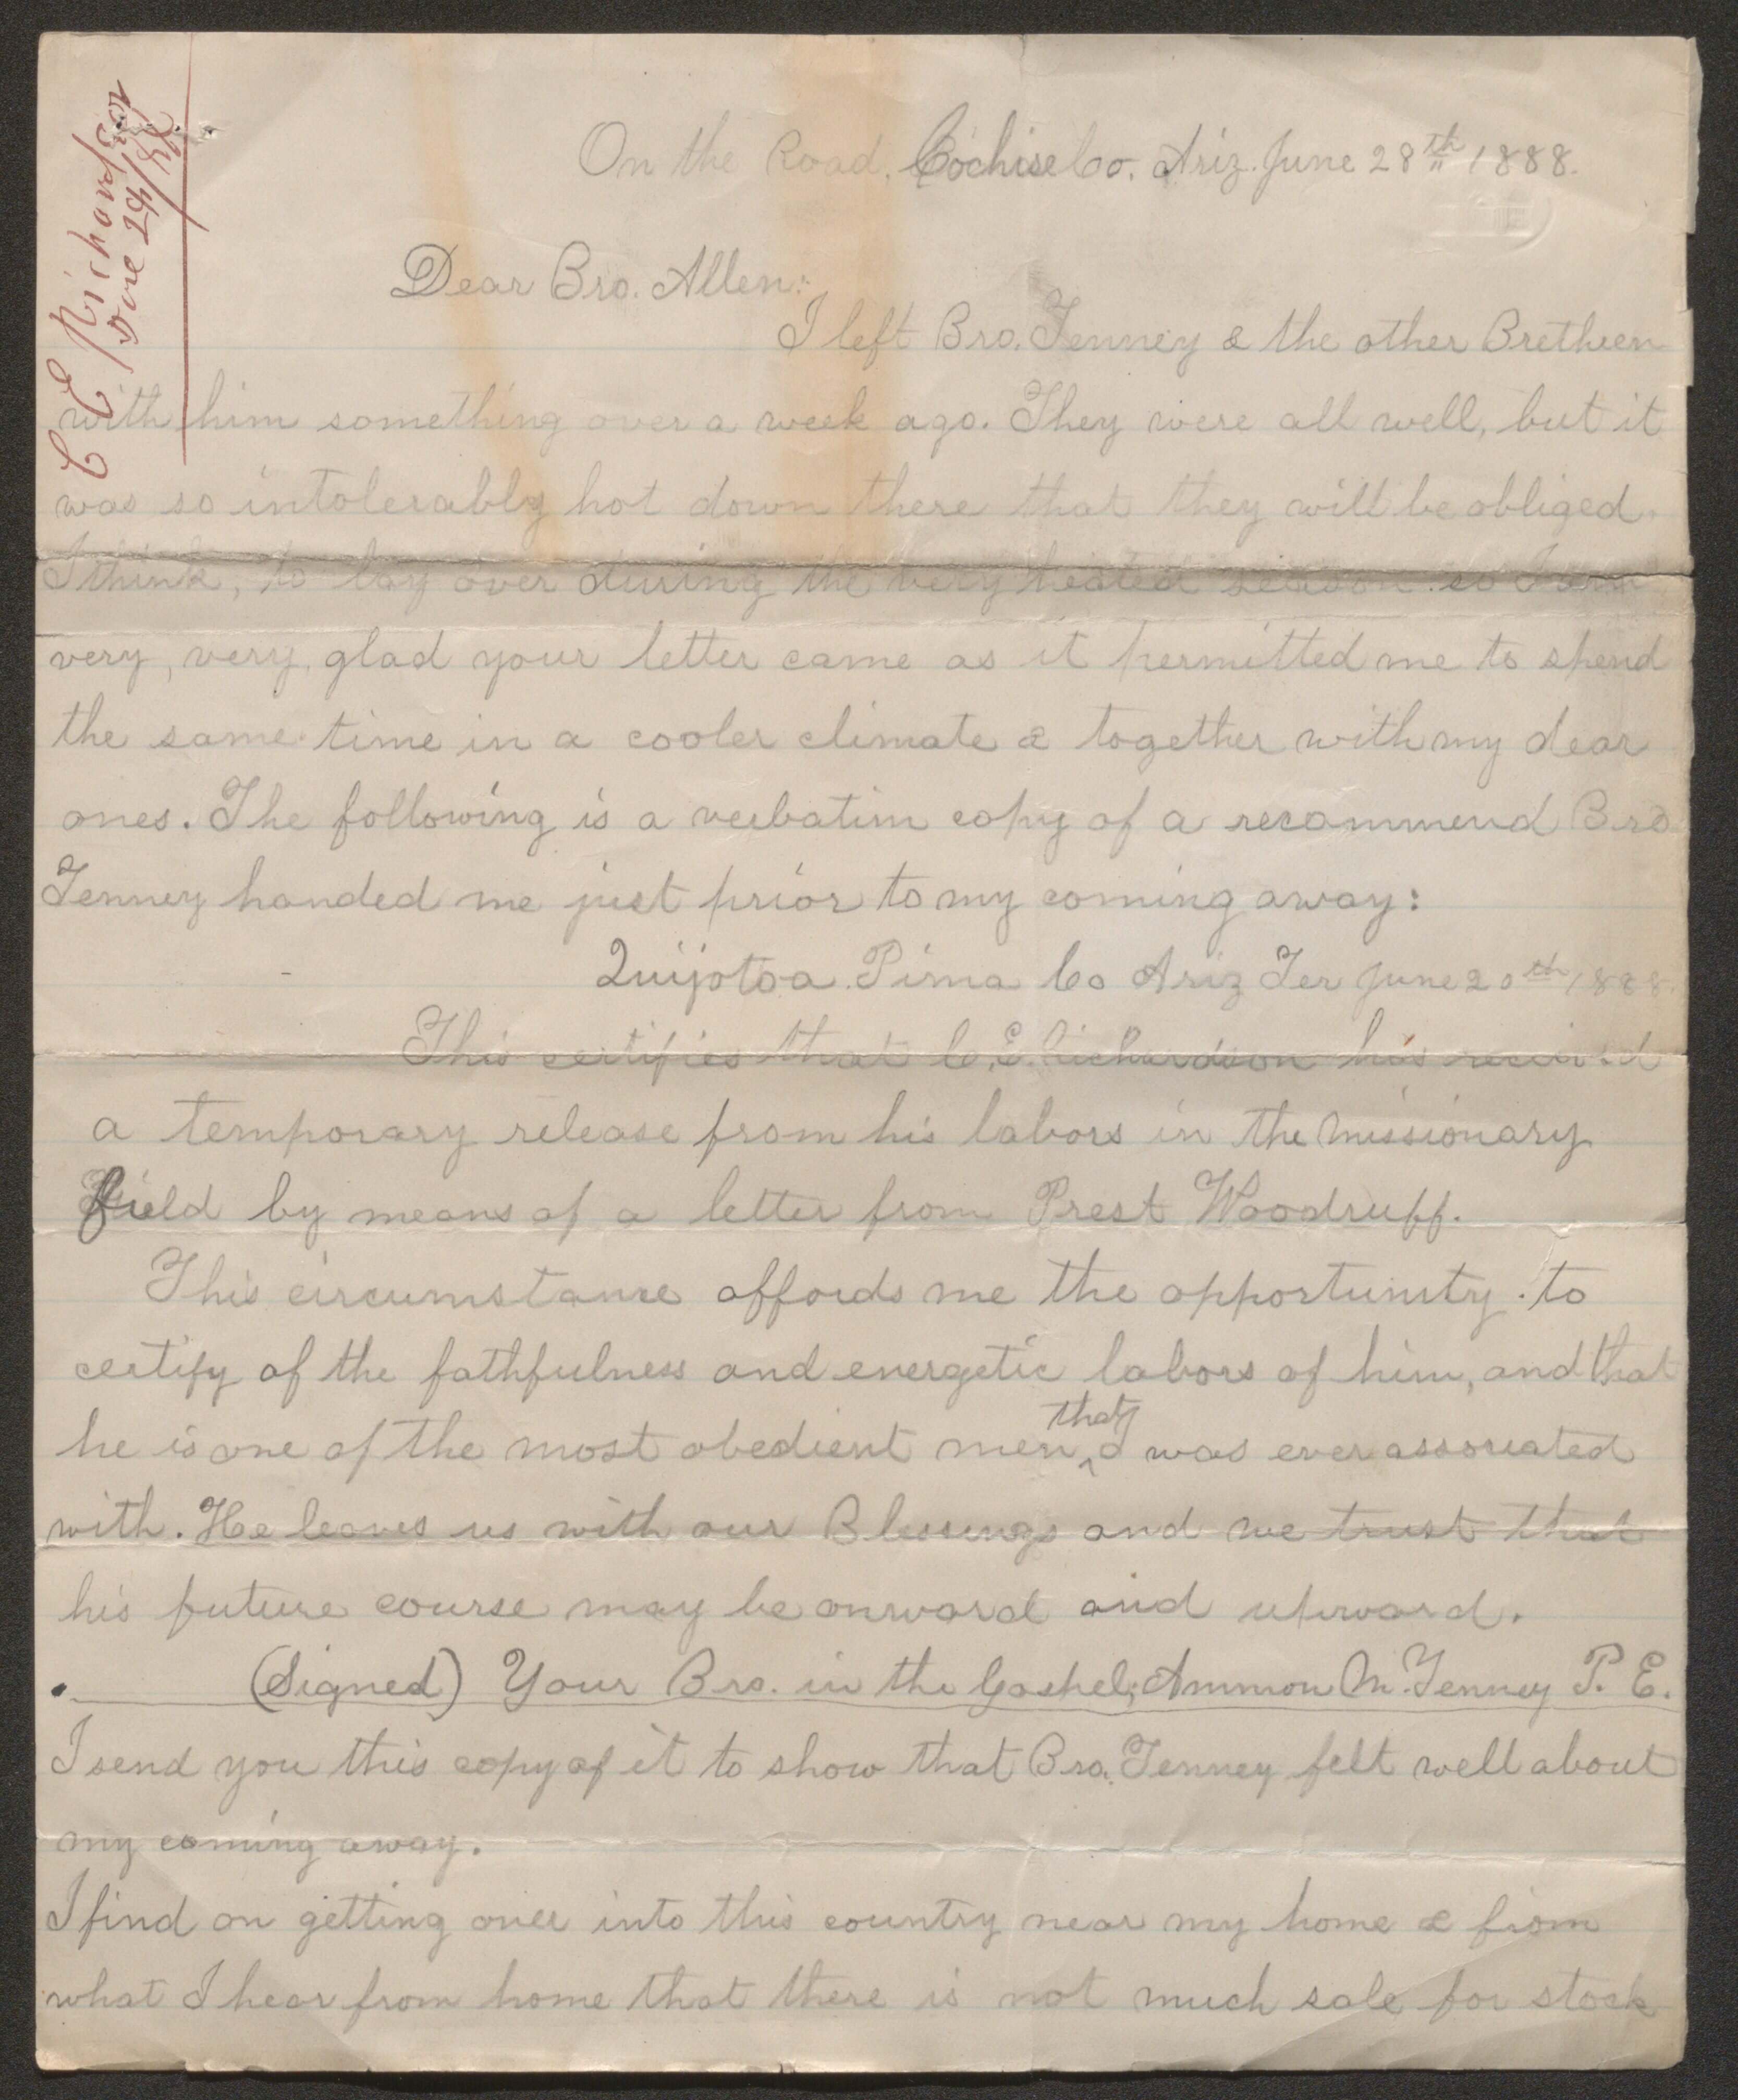 C E Richardson
June 29/88
On the Road, Cochise Co. Ariz. June 28th 1888.
Dear Bro. Allen:
I left Bro. Tenney & the other Bretheen
with him something over a week ago. They were all well, but it
was so intolerably hot down there that they will be obliged,
I think, to lay over during the very heated season. so I am
very, very, glad your letter came as it permitted me to spend
the same time in a cooler climate & together with my dear
ones. The following is a verbatim copy of a recommend Bro
Tenney handed me just prior to my coming away:
Quijotoa Pima Co Ariz Ter June 20th 1888.
This certifies that C. E. Richardson has received
a temporary release from his labors in the missionary
field by means of a letter from Prest Woodruff.
This circumstance affords me the opportunity to
certify of the fathfulness and energetic labors of him, and that
he is one of the most obedient men that I was ever associated
with. He leaves us with our Blessings and we trust that
his future course may be onward and upward.
(Signed) Your Bro. in the Gospel, Ammon M. Tenney P. E.
I send you this copy of it to show that Bro. Tenney felt well about
my coming away.
I find on getting over into this country near my home & from
what I hear from home that there is not much sale for stock